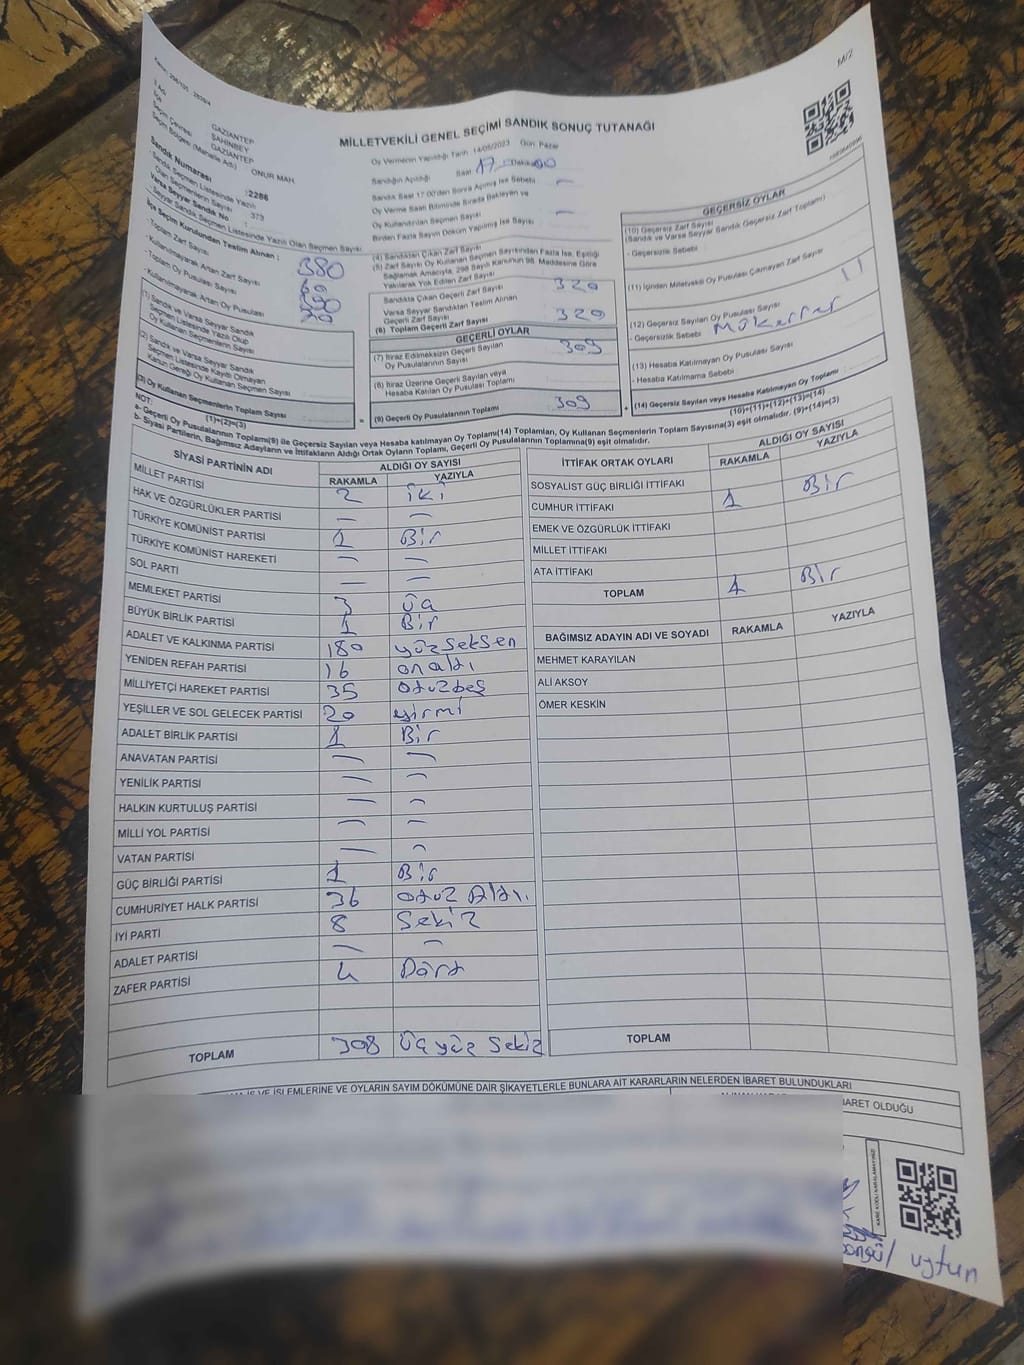 M/2
Kanun: 298/105 - 2839/4
MİLLETVEKİLİ GENEL SEÇİMİ SANDIK SONUÇ TUTANAĞI
İl Adı GAZİANTEP
İlçe ŞAHİNBEY
Seçim Çevresi GAZİANTEP
Seçim Bölgesi (Mahalle Adı) ONUR MAH.
Sandık Numarası : 2286
Sandık Seçmen Listesinde Yazılı
Olan Seçmenlerin Sayısı : 373
Varsa Seyyar Sandık No
Seyyar Sandık Seçmen Listesinde Yazılı Olan Seçmen Sayısı
Oy Vermenin Yapıldığı Tarih 14/05/2023 Gün: Pazar
Sandığın Açıldığı Saat 17 Dakika 00
Sandık Saat 17:00'den Sonra Açılmış İse Sebebi —
Oy Verme Saati Bitiminde Sırada Bekleyen ve
Oy Kullandırılan Seçmen Sayısı —
Birden Fazla Sayım Döküm Yapılmış İse Sayısı
İlçe Seçim Kurulundan Teslim Alınan :
- Toplam Zarf Sayısı 380
- Kullanılmayarak Artan Zarf Sayısı 60
- Toplam Oy Pusulası Sayısı
- Kullanılmayarak Artan Oy Pusulası
(1) Sandık ve Varsa Seyyar Sandık
Seçmen Listesinde Yazılı Olup
Oy Kullanan Seçmenlerin Sayısı
(2) Sandık ve Varsa Seyyar Sandık
Seçmen Listesinde Kayıtlı Olmayan
Kanun Gereği Oy Kullanan Seçmen Sayısı
(3) Oy Kullanan Seçmenlerin Toplam Sayısı
(1)+(2)=(3)
(4) Sandıktan Çıkan Zarf Sayısı
(5) Zarf Sayısı Oy Kullanan Seçmen Sayısından Fazla İse, Eşitliği
Sağlamak Amacıyla, 298 Sayılı Kanunun 98. Maddesine Göre
Yakılarak Yok Edilen Zarf Sayısı
Sandıkta Çıkan Geçerli Zarf Sayısı 320
Varsa Seyyar Sandıktan Teslim Alınan
Geçerli Zarf Sayısı
(6) Toplam Geçerli Zarf Sayısı 320
GEÇERLİ OYLAR
(7) İtiraz Edilmeksizin Geçerli Sayılan
Oy Pusulalarının Sayısı 309
(8) İtiraz Üzerine Geçerli Sayılan veya
Hesaba Katılan Oy Pusulası Toplamı
= (9) Geçerli Oy Pusulalarının Toplamı 309 +
GEÇERSİZ OYLAR
(10) Geçersiz Zarf Sayısı
(Sandık ve Varsa Seyyar Sandık Geçersiz Zarf Toplamı)
- Geçersizlik Sebebi :
(11) İçinden Milletvekili Oy Pusulası Çıkmayan Zarf Sayısı
(12) Geçersiz Sayılan Oy Pusulası Sayısı 11
- Geçersizlik Sebebi : mükerrer
(13) Hesaba Katılmayan Oy Pusulası Sayısı
- Hesaba Katılmama Sebebi :
(14) Geçersiz Sayılan veya Hesaba Katılmayan Oy Toplamı :
(10)+(11)+(12)+(13)=(14)
NOT:
a- Geçerli Oy Pusulalarının Toplamı(9) ile Geçersiz Sayılan veya Hesaba katılmayan Oy Toplamı(14) Toplamları, Oy Kullanan Seçmenlerin Toplam Sayısına(3) eşit olmalıdır. (9)+(14)=(3)
b- Siyasi Partilerin, Bağımsız Adayların ve İttifakların Aldığı Ortak Oyların Toplamı, Geçerli Oy Pusulalarının Toplamına(9) eşit olmalıdır.
SİYASİ PARTİNİN ADI ALDIĞI OY SAYISI
RAKAMLA YAZIYLA
MİLLET PARTİSİ 2 iki
HAK VE ÖZGÜRLÜKLER PARTİSİ — —
TÜRKİYE KOMÜNİST PARTİSİ 1 Bir
TÜRKİYE KOMÜNİST HAREKETİ — —
SOL PARTİ — —
MEMLEKET PARTİSİ 3 üç
BÜYÜK BİRLİK PARTİSİ 1 Bir
ADALET VE KALKINMA PARTİSİ 180 yüzseksen
YENİDEN REFAH PARTİSİ 16 onaltı
MİLLİYETÇİ HAREKET PARTİSİ 35 otuzbeş
YEŞİLLER VE SOL GELECEK PARTİSİ 20 yirmi
ADALET BİRLİK PARTİSİ 1 Bir
ANAVATAN PARTİSİ — —
YENİLİK PARTİSİ — —
HALKIN KURTULUŞ PARTİSİ — —
MİLLİ YOL PARTİSİ — —
VATAN PARTİSİ — —
GÜÇ BİRLİĞİ PARTİSİ 1 Bir
CUMHURİYET HALK PARTİSİ 36 otuz Altı.
İYİ PARTİ 8 Sekiz
ADALET PARTİSİ — —
ZAFER PARTİSİ 4 Dört
TOPLAM 308 Üçyüz Sekiz
İTTİFAK ORTAK OYLARI ALDIĞI OY SAYISI
RAKAMLA YAZIYLA
SOSYALİST GÜÇ BİRLİĞİ İTTİFAKI
CUMHUR İTTİFAKI 1 Bir
EMEK VE ÖZGÜRLÜK İTTİFAKI
MİLLET İTTİFAKI
ATA İTTİFAKI
TOPLAM 1 Bir
BAĞIMSIZ ADAYIN ADI VE SOYADI RAKAMLA YAZIYLA
MEHMET KARAYILAN
ALİ AKSOY
ÖMER KESKİN
TOPLAM
İŞ VE İŞLEMLERİNE VE OYLARIN SAYIM DÖKÜMÜNE DAİR ŞİKAYETLERLE BUNLARA AİT KARARLARIN NELERDEN İBARET BULUNDUKLARI
BARET OLDUĞU
KARE KODU KARALAMAYINIZ!
uytun